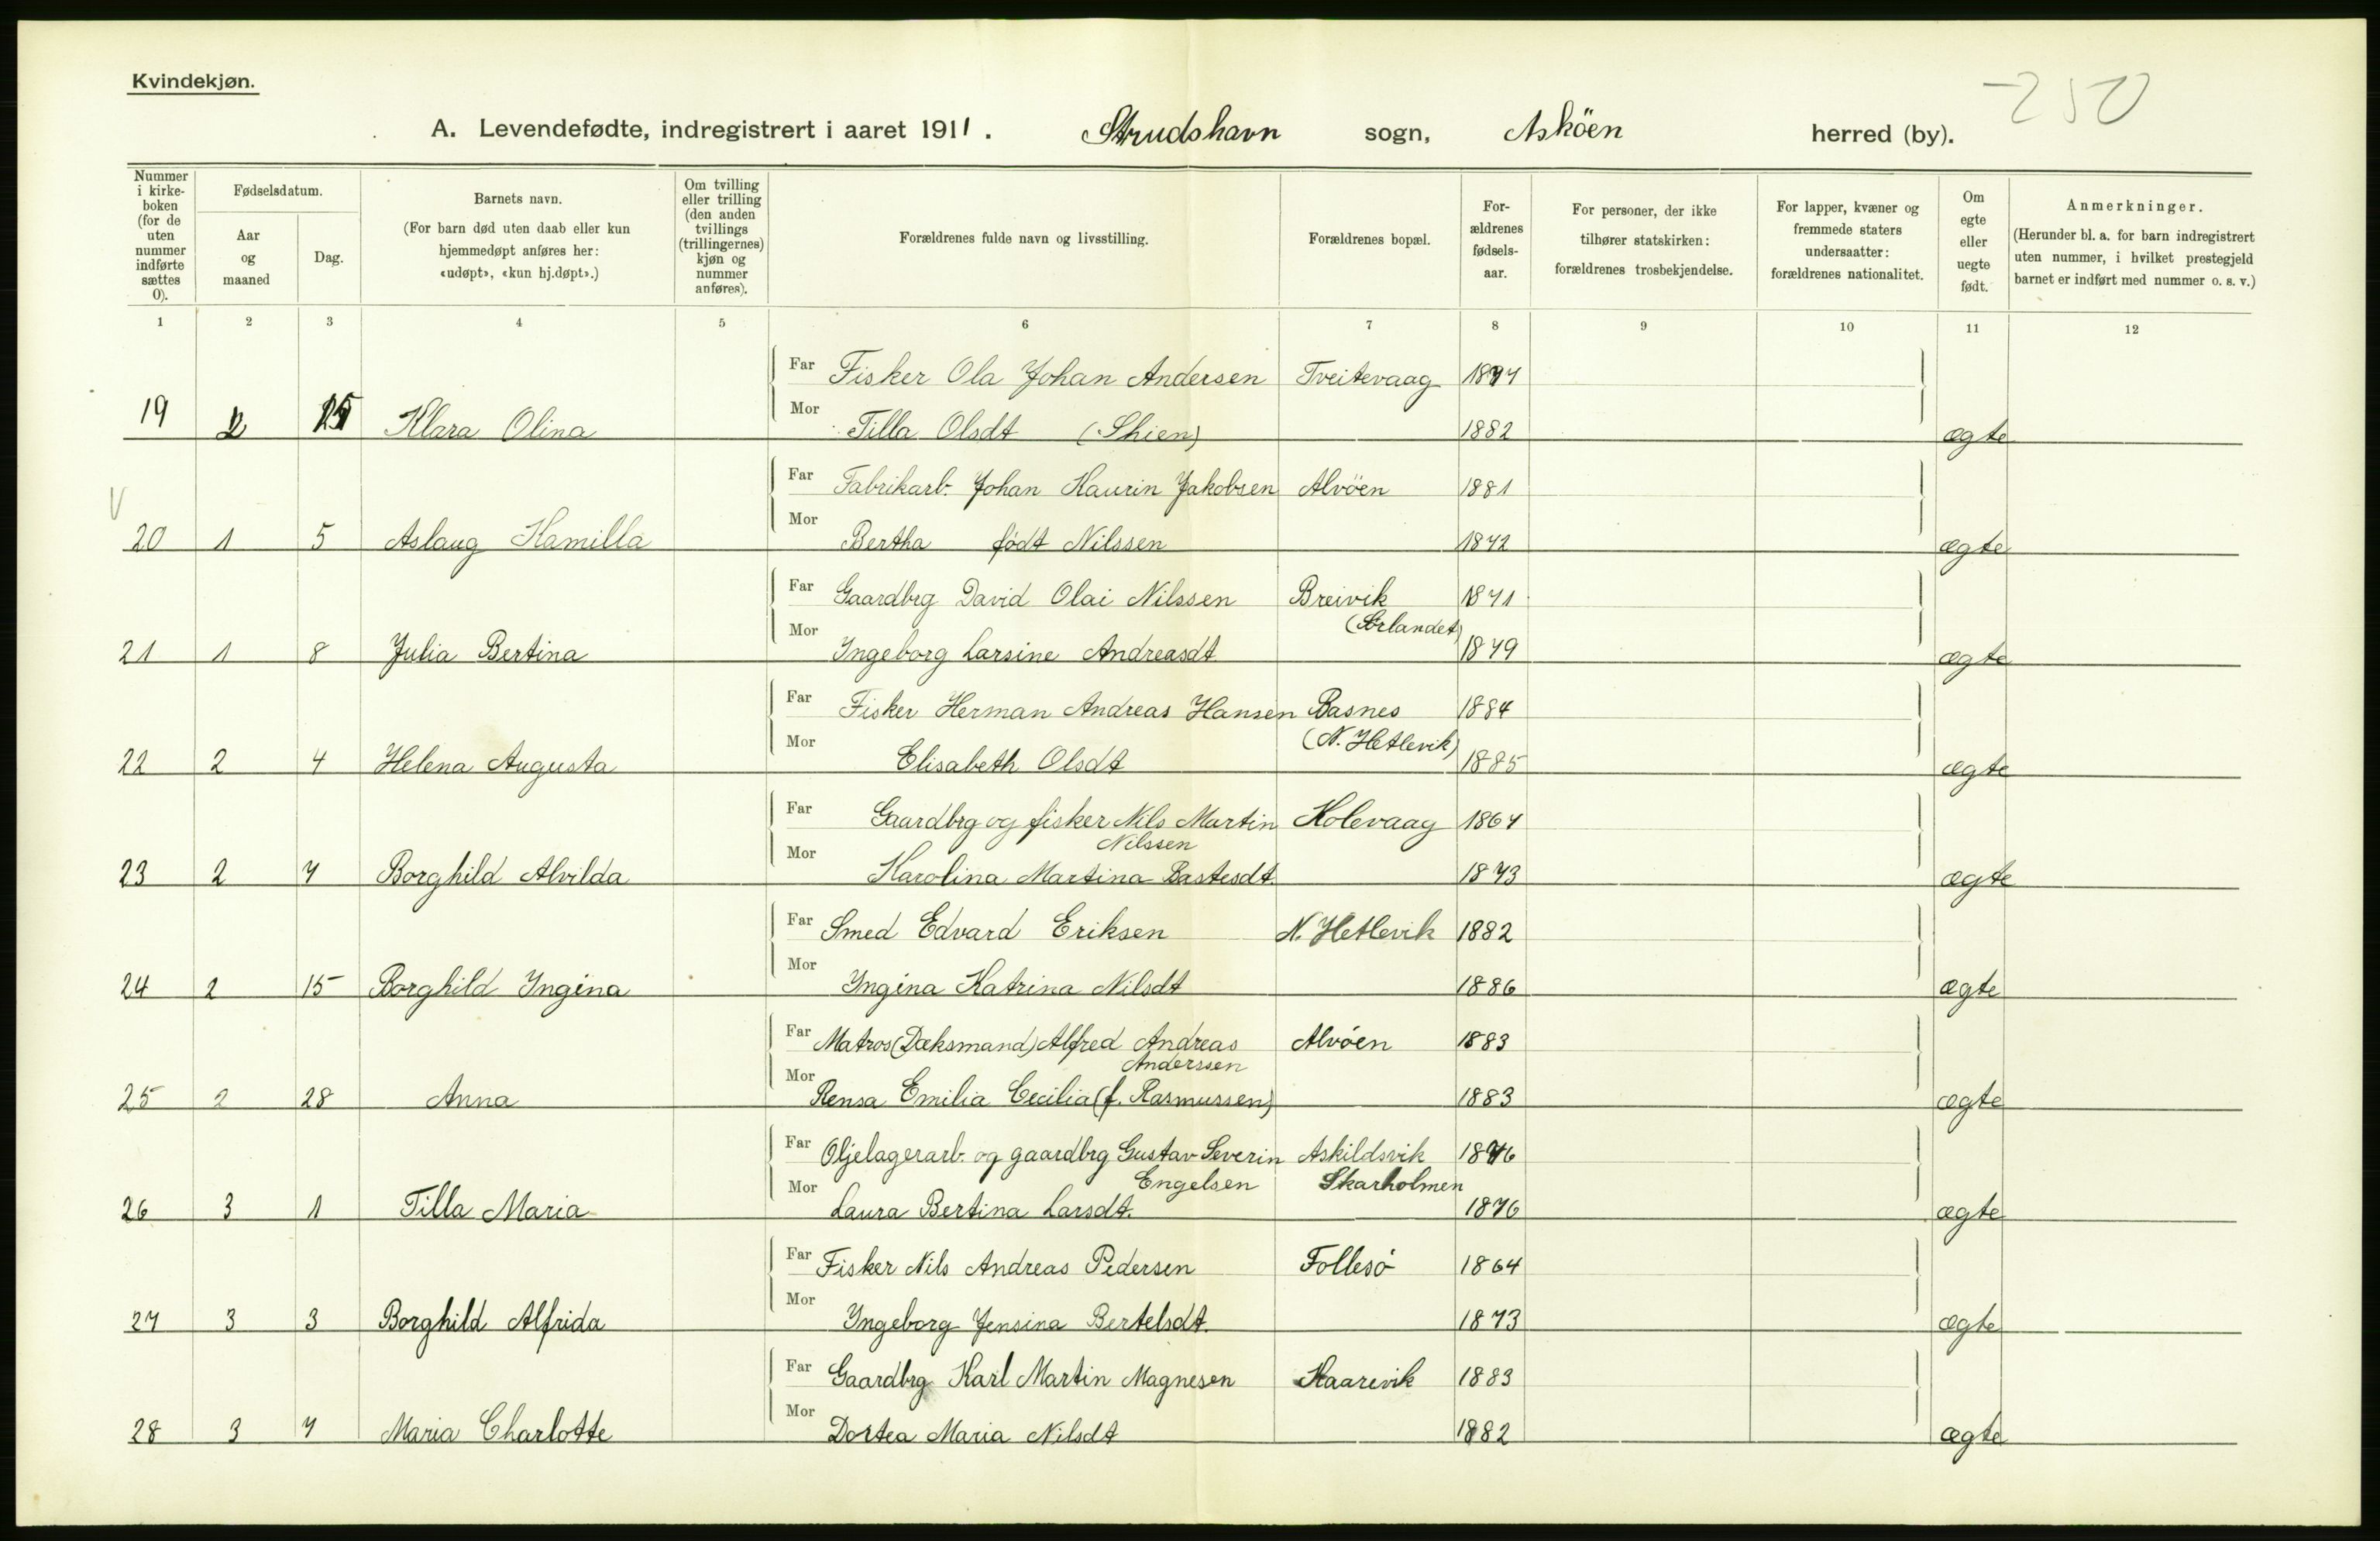 Kvindekjøn.
250
A. Levendefødte, indregistrert i aaret 1911. Strudshavn sogn, Asköen herred (by).
Nummer i kirke-boken (for de uten nummer indførte sættes 0).
Fødselsdatum.
Aar og maaned
Dag.
Barnets navn.
(For barn død uten daab eller kun hjemmedøpt anføres her: «udøpt», «kun hj.døpt».)
Om tvilling eller trilling (den anden tvillings (trillingernes) kjøn og nummer anføres).
Forældrenes fulde navn og livsstilling.
Forældrenes bopæl.
For-ældrenes fødsels-aar.
For personer, der ikke tilhører statskirken: forældrenes trosbekjendelse.
For lapper, kvæner og fremmede staters undersaatter: forældrenes nationalitet.
Om egte eller uegte født.
Anmerkninger.
(Herunder bl. a. for barn indregistrert uten nummer, i hvilket prestegjeld barnet er indført med nummer o. s. v.)
1 2 3 4 5 6 7 8 9 10 11 12
Far Fisker Ola Johan Andersen Tveitevaag 1877
19 2 Klara Olina Mor Tilla Olsdt (Skien) 1882 ægte
V
Far Fabrikarb. Johan Kaurin Jakobsen Alvöen 1881
20 1 5 Aslaug Kamilla Mor Bertha født Nilssen 1872 ægte
Far Gaardbrg David Olai Nilssen Breivik 1871
(Sørlandet)
21 1 8 Julia Bertina Mor Ingeborg Larsine Andreasdt 1879 ægte
Far Fisker Herman Andreas Hansen Basnes 1884
(N. Hetlevik)
22 2 4 Helena Augusta Mor Elisabeth Olsdt 1885 ægte
Far Gaardbrg og fisker Nils Martin Kolevaag 1867
Nilssen
23 2 7 Borghild Alvilda Mor Karolina Martina Bastesdt. 1873 ægte
Far Smed Edvard Eriksen N. Hetlevik 1882
24 2 15 Borghild Ingina Mor Ingina Katrina Nilsdt 1886 ægte
Far Matros (Dæksmand) Alfred Andreas Alvöen 1883
Anderssen
25 2 28 Anna Mor Rensa Emilia Cecilia (f. Rasmussen) 1883 ægte
Far Oljelagerarb. og gaardbrg Gustav Severin Askildsvik 1876
Engelsen Skarholmen
26 3 1 Tilla Maria Mor Laura Bertina Larsdt. 1876 ægte
Far Fisker Nils Andreas Pedersen Follesö 1864
27 3 3 Borghild Alfrida Mor Ingeborg Jensina Bertelsdt. 1873 ægte
Far Gaardbrg Karl Martin Magnesen Kaarevik 1883
28 3 7 Maria Charlotte Mor Dortea Maria Nilsdt 1882 ægte